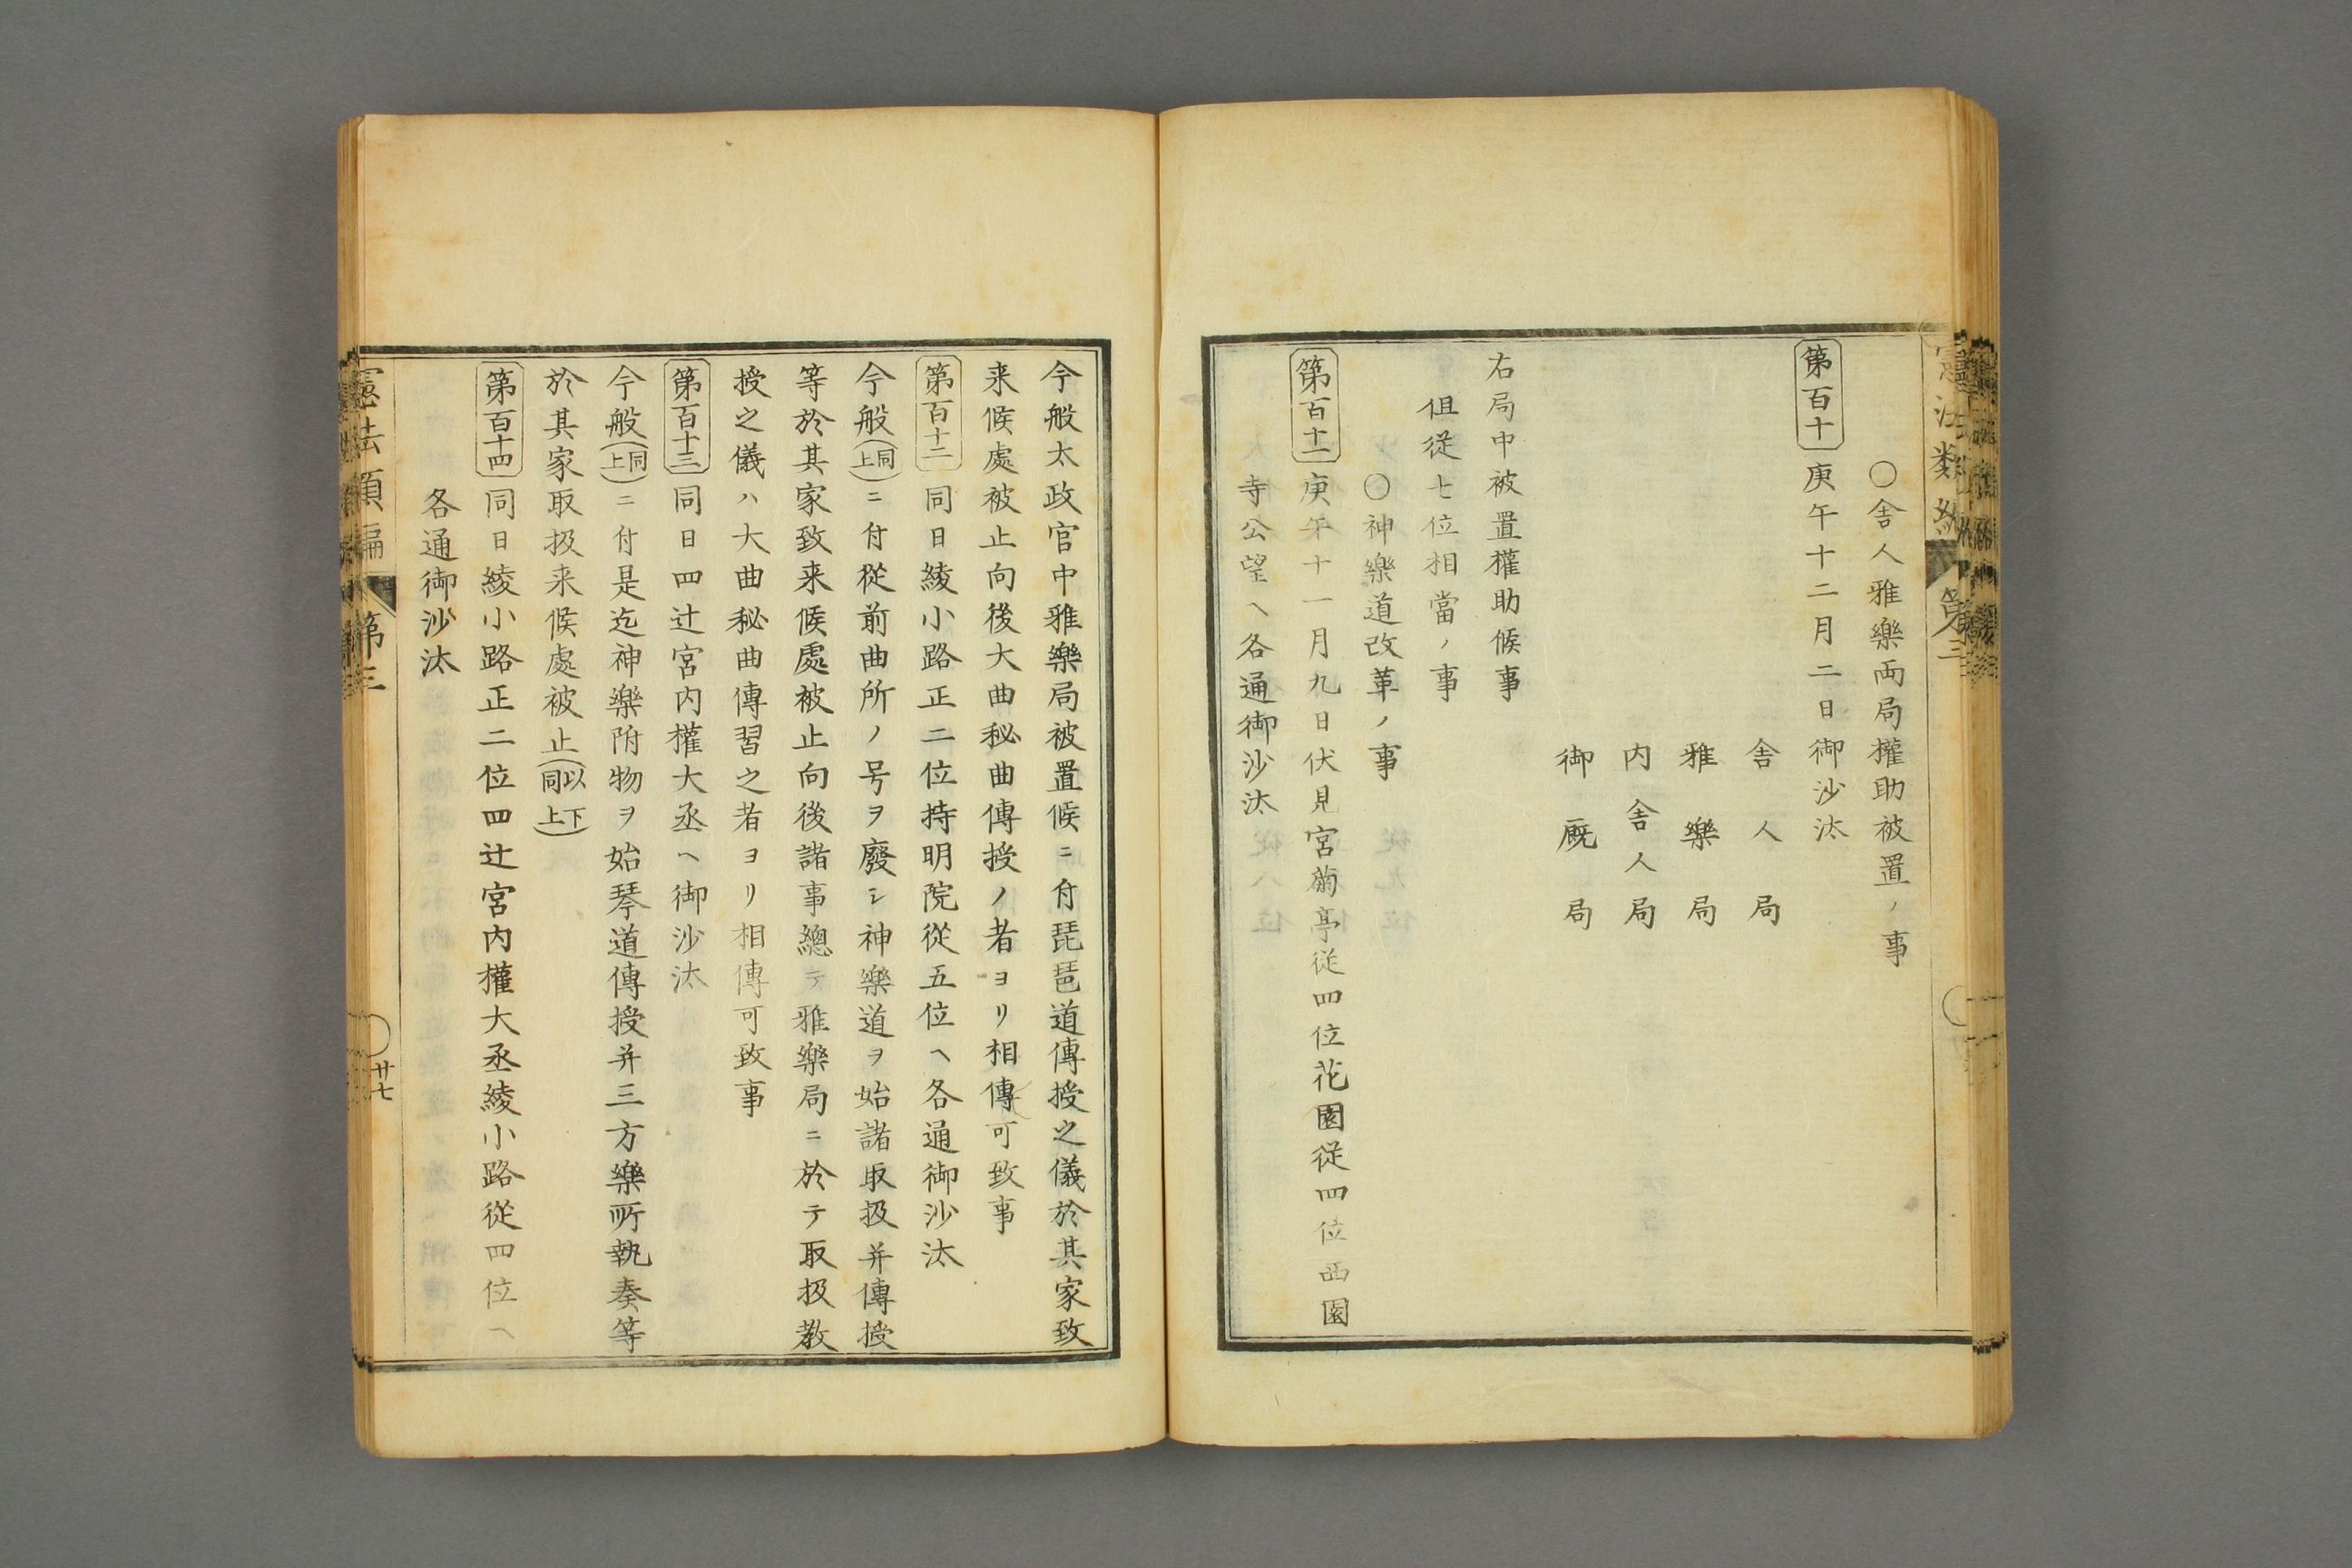 〇舎人雅樂両局權助被置ノ事
第百十 庚午十二月二日御沙汰
舎人局
雅樂局
内舎人局
御厩局
右局中被置權助候事
伹従七位相當ノ事
〇神樂道改革ノ事
第百十一 庚午十一月九日伏見宮菊亭従四位花園従四位西園
寺公望ヘ各通御沙汰
今般太政官中雅樂局被置候ニ付琵琶道傳授之儀於其家致
来候處被止向後大曲秘曲傳授ノ者ヨリ相傳可致事
第百十二 同日綾小路正二位持明院従五位ヘ各通御沙汰
今般(同上)ニ付従前曲所ノ号ヲ廢シ神樂道ヲ始諸取扱并傳授
等於其家致来候處被止向後諸事總テ雅樂局ニ於テ取扱教
授之儀ハ大曲秘曲傳習之者ヨリ相傳可致事
第百十三 同日四辻宮内權大丞ヘ御沙汰
今般(同上)ニ付是迄神樂附物ヲ始琴道傳授并三方樂所執奏等
於其家取扱来候處被止(以下同上)
第百十四 同日綾小路正二位四辻宮内權大丞綾小路従四位ヘ
各通御沙汰
憲法類編 第三
廿七